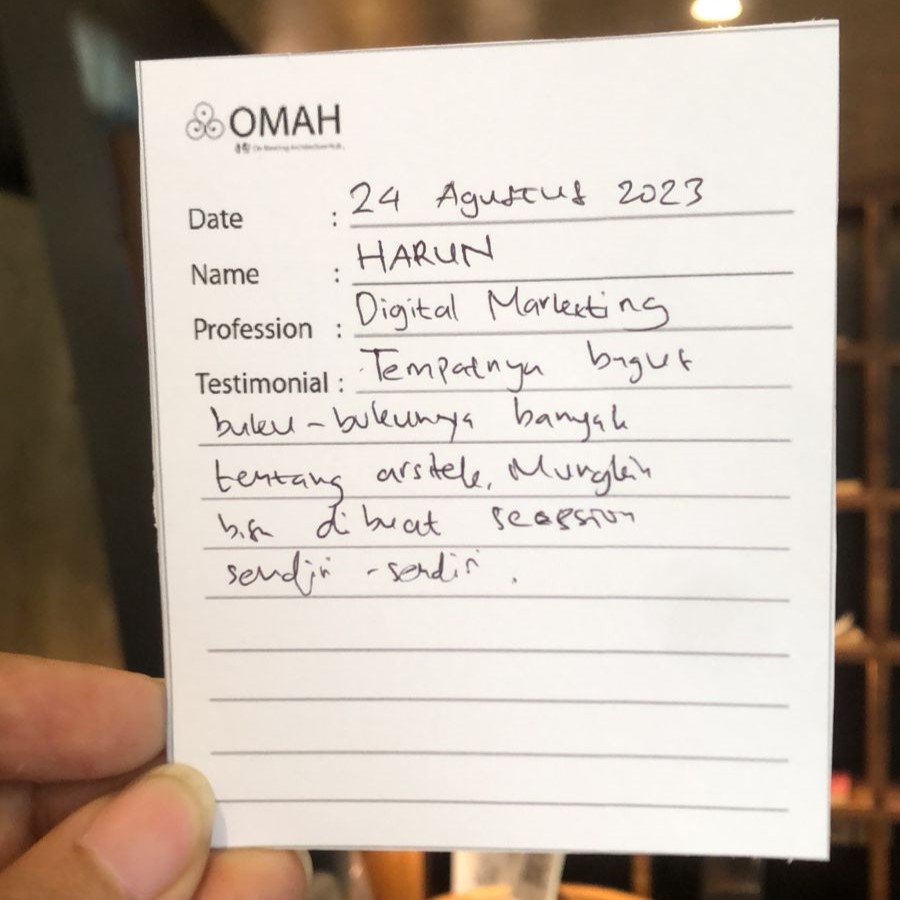 OMAH
Date : 24 Agustus 2023
Name : HARUN
Profession : Digital Marketing
Testimonial : Tempatnya bagus
buku-bukunya banyak
tentang arsitek, Mungkin
bisa dibuat
sendiri-sendiri.